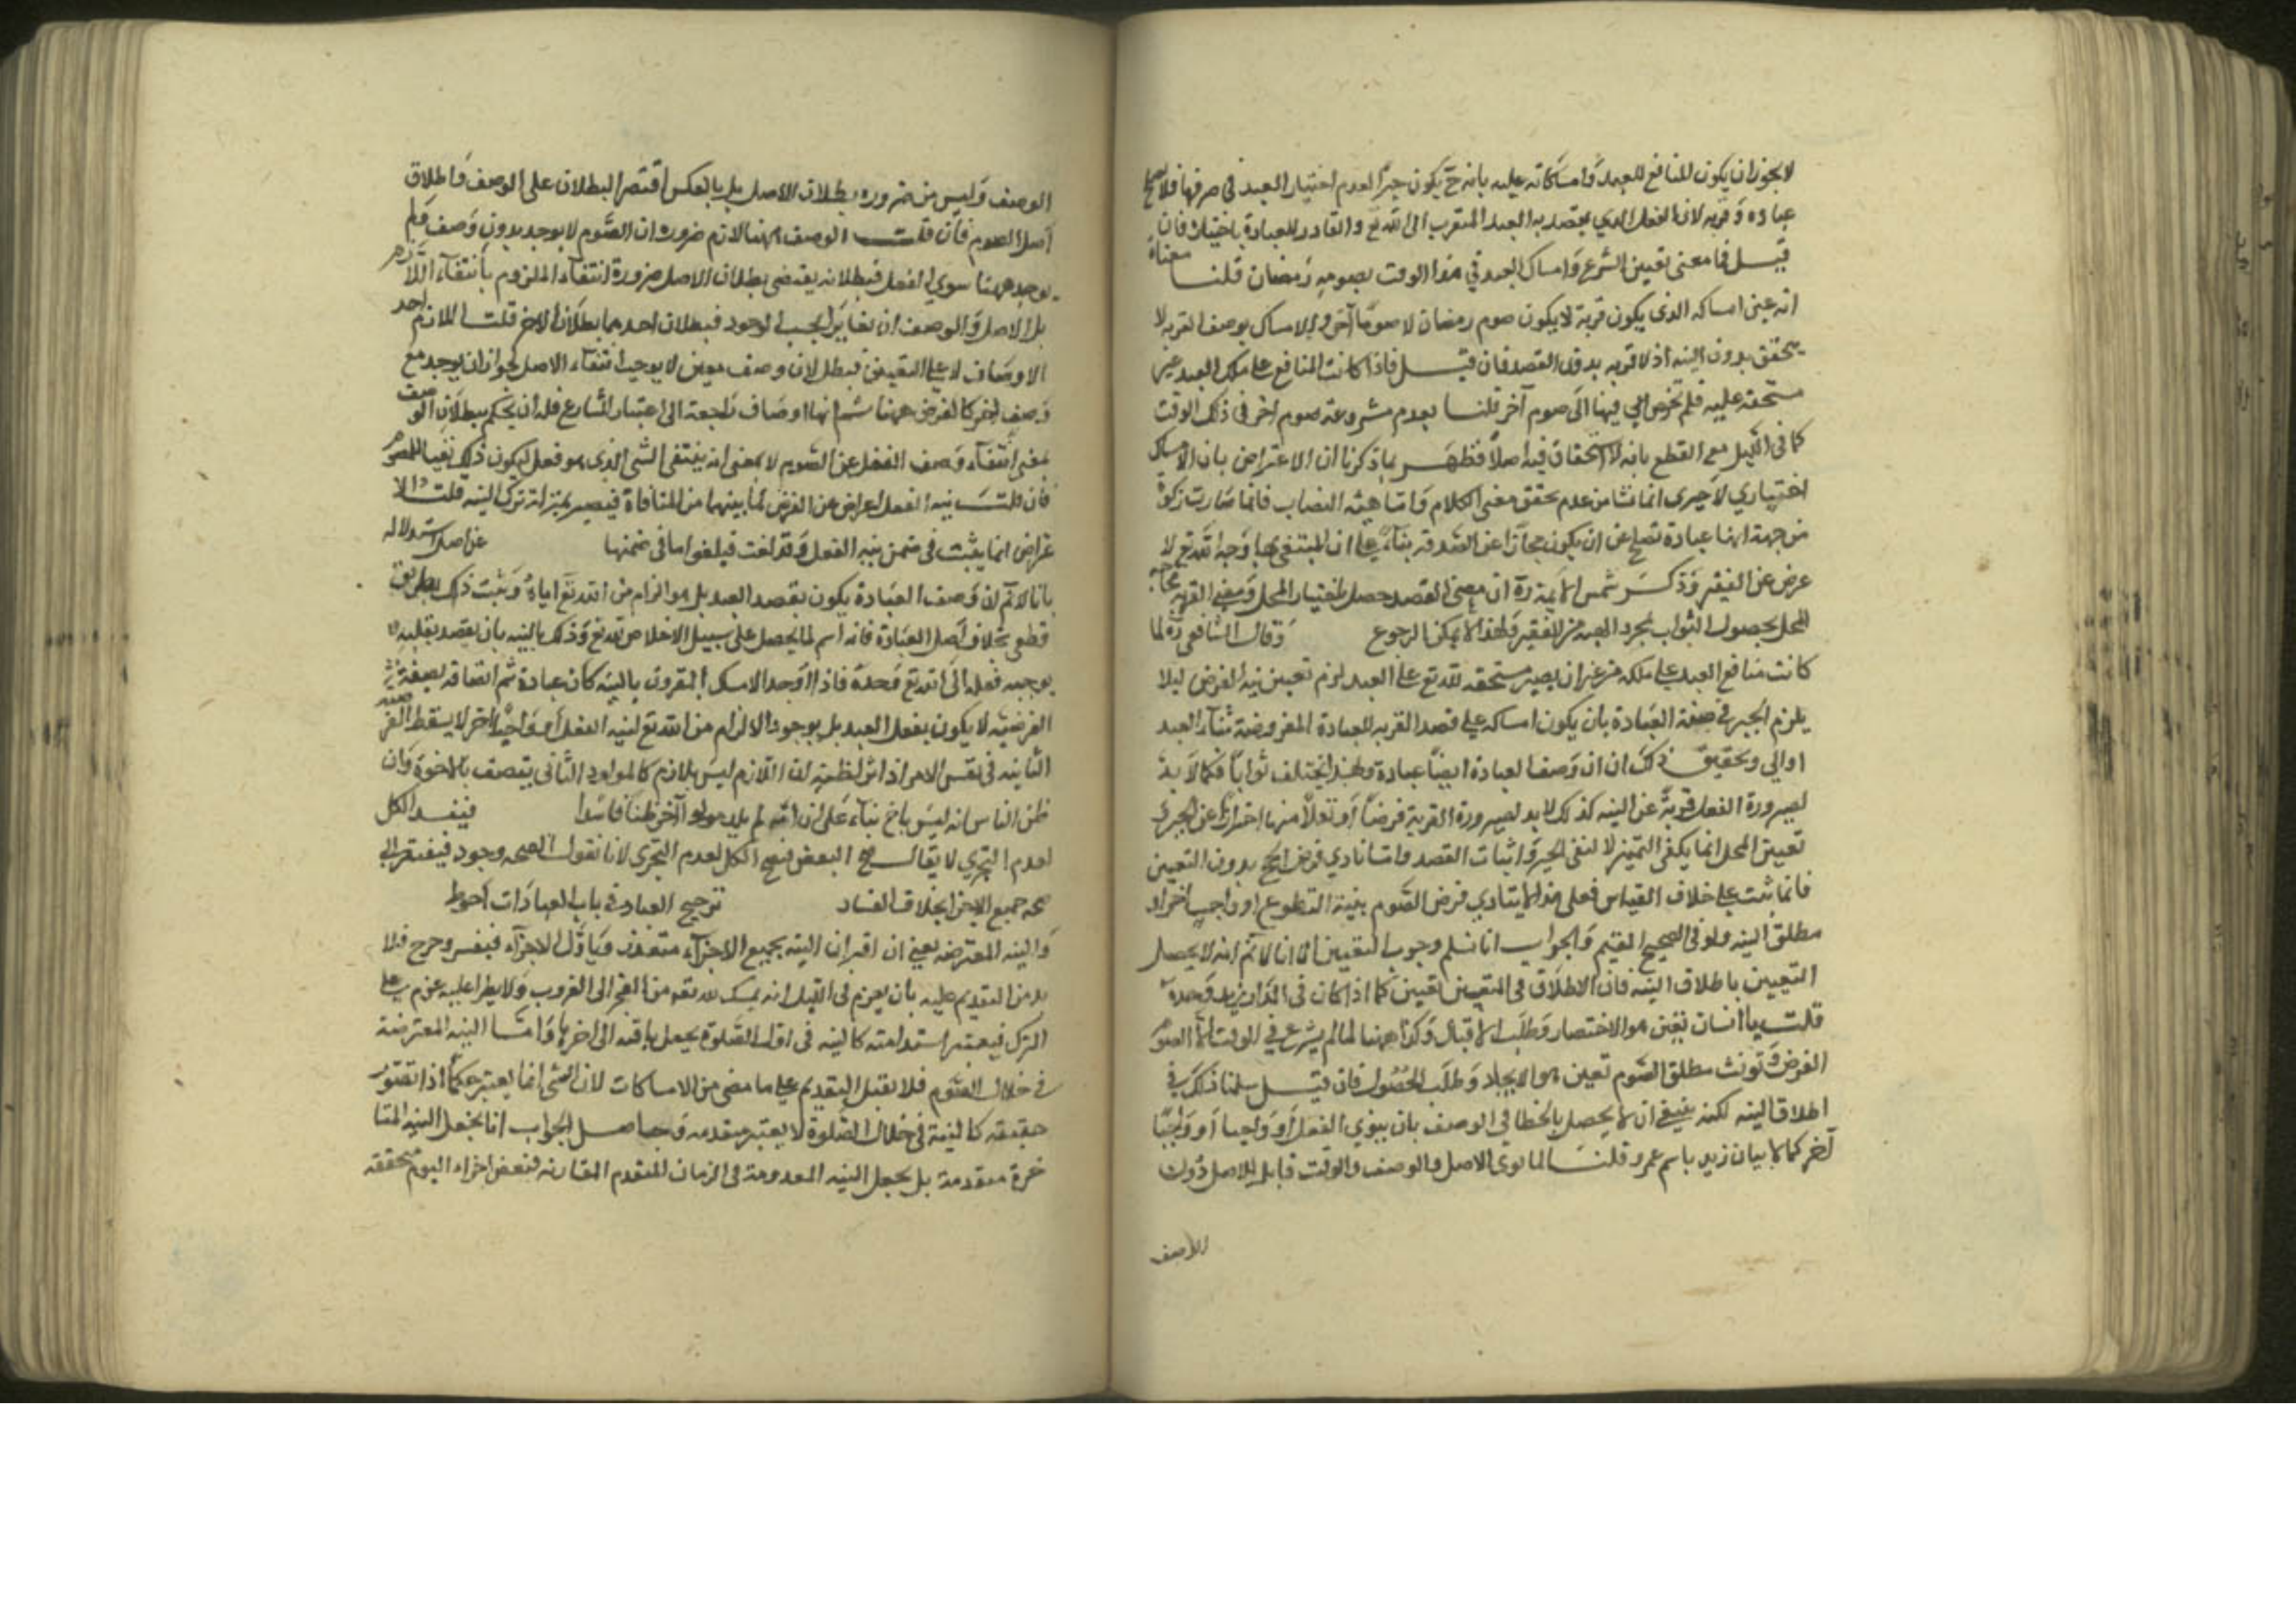 لا يجوز ان يكون المنافع للعبد وامساكاته عليه بانه ح يكون جبرًا لعدم اختيار العبد في صرفها فلا تصلح
عبادة وقربة لانها الفعل الذي يقصد به العبد التقرب الى الله تع والقادر للعبادة باختياره فان
قيل فما معنى تعيين الشرع وامساك العبد في هذا الوقت بصومه رمضان قلنا معناه
انه عين امساكه الذي يكون قربة لا يكون صوم رمضان لا صومًا آخر والامساك بوصف القربة لا
يتحقق بدون النية اذ لا قربة بدون القصد فان قيل فاذا كانت المنافع على ملك العبد غير
مستحقة عليه فلم صوم آخر قلنا بعدم مشروعية صوم اخر في ذلك الوقت
كما في الليل مع القطع بانه لا استحقاق فيه اصلاً فظهر بما ذكرنا ان الاعتراض بان الامساك
اختياري لا جبري انما نشا من عدم تحقق معنى الكلام واما هبة النصاب فانما صارت زكوة
من جهة انها عبادة تصلح ان يكون مجازًا عن الصدقة بناء على ان المبتغى بها وجه الله تع لا
عرض عن الفقير وذكر شمس الايمة رة ان معنى القصد حصل باختيار المحل ومعنى القربة لحاجة
المحل بحصول الثواب بمجرد الهبة من الفقير ولهذا لا يمكنه الرجوع وقال الشافعي رة لما
كانت منافع العبد على ملكه من غير ان يصير مستحقة لله تع على العبد لزم تعيين نية الفرض ليلا
يلزم الجبر في صفة العبادة بان يكون امساكه على قصد القربة للعبادة المفروضة شاء العبد
او ابى وتحقيق ذلك ان ان وصف العبادة ايضًا عبادة ولهذا يختلف ثوابًا فكما لا بد
لصيرورة الفعل قربة عن النية كذلك لا بد لصيرورة القربة فرضًا او نفلاً منها احترازًا عن الجبر و
تعيين المحل انما يكفي التميز لا لنفي الجبر واثبات القصد واما تادي فرض الحج بدون التعيين
فانما ثبت على خلاف القياس فعلى هذا لا يتادي فرض الصوم بنية التطوع او واجب اخر او
مطلق النية ولو في الصحيح المقيم والجواب انا نسلم وجوب التعيين الا انا لا نم انه لا يحصل
التعيين باطلاق النية فان الاطلاق في المتعين تعيين كما اذا كان في الدار زيد وحده
قلت يا انسان تعين هو الاختصار وطلب الاقبال وكذا ههنا لما لم يشرع في الوقت الا الصوم
الفرض ونويت مطلق الصوم تعين هو الايجاد وطلب الحصول فان قيل سلمنا ذلك في
اطلاق النية لكنه ينبغي ان لا يحصل بالخطا في الوصف بان ينوي النفل او واجبا او واجبًا
آخر كما لا بيان زيد باسم عمرو قلنا لما نوى الاصل والوصف والوقت قابل للاصل دون
الوصف
الوصف وليس من ضرورة بطلان الاصل بل بالعكس اقتصر البطلان على الوصف واطلاق
اصل الصوم فان قلت الوصف ههنا لازم ضرورة ان الصوم لا يوجد بدون وصف ولم
يوجد ههنا سوي النفل فبطلانه يقتضي بطلان الاصل ضرورة انتفاء الملزوم بانتفاء اللازم
بل الاصل والوصف ان تغايرا بحسب الوجود فبطلان احدهما بطلان الاخر قلت اللازم احد
الاوصاف لا على التعيين فبطلان وصف معين لا يوجب انتفاء الاصل لجواز ان يوجد مع
وصف اخر كالفرض ههنا ثم انها اوصاف راجعة الى اعتبار الشارع فله ان يحكم ببطلان الوصف
بمعنى انتفاء وصف النفل عن الصوم لا بمعنى انه ينتفى الشي الذي هو فعل ليكون ذلك نفيا للصوم
فان قلت نية النفل اعراض عن الفرض لما بينهما من المنافاة فيصير بمنزلة ترك النية قلت الا
عراض انما يثبت في ضمن نية النفل وقد لغت فيلغو ما في ضمنها عن اصل استدلاله
بانا لا نم ان وصف العبادة يكون بقصد العبد بل هو الزام من الله تع اياه ويثبت ذلك بطريق
قطعي بخلاف اصل العبادة فانه اسم لما يحصل على سبيل الاخلاص لله تع وذلك بالنية بان يقصد بقلبه
يوجه فعله الى الله تع وحده فاذا اوجد الامساك المقرون بالنية كان عبادة ثم اتصافه بصفة
الفرضية لا يكون بفعل العبد بل بوجود الالزام من الله تع لنية النفل او واجبًا اخر لا يسقط الفرضية
الثابتة في نفس الامر اذ اثر لظنه ان اللازم ليس بلازم كالمولود الثاني يتصف بالاخوة وان
ظن الناس انه ليس باخ بناء على ان امه لم يلد مولودا آخر ظنا فاسدا فيفسد الكل
لعدم التجزي لا يقال البعض فصح الكل لعدم التجزي لانا نقول الصحة وجود فيفتقر الى
صحة جميع الاجزا بخلاف الفساد ترجيح العبادة في باب العبادات احوط
والنية المعترضة يعني ان اقتران النية بجميع الاجزاء متعذر وباول الاجزاء متعسر وحرج فلا
بد من التقديم عليه بان يعزم في الليل انه يمسك لله تع من الفجر الى الغروب ولا يطرا عليه عزم على
الترك فيعتبر استدامته كالنية في اول الصلوة يجعل باقية الى اخرها واما النية المعترضة
في خلال الصوم فلا تقبل التقديم على ما مضى من الامساكات لان الشي انما يعتبر حكمًا اذا تصور
حقيقة كالنية في خلال الصلوة لا يعتبر متقدمة وحاصل الجواب انا نجعل النية المتا
خرة متقدمة بل نجعل النية المعدومة في الزمان المتقدم المقارنة لبعض اجزاء اليوم متحققة